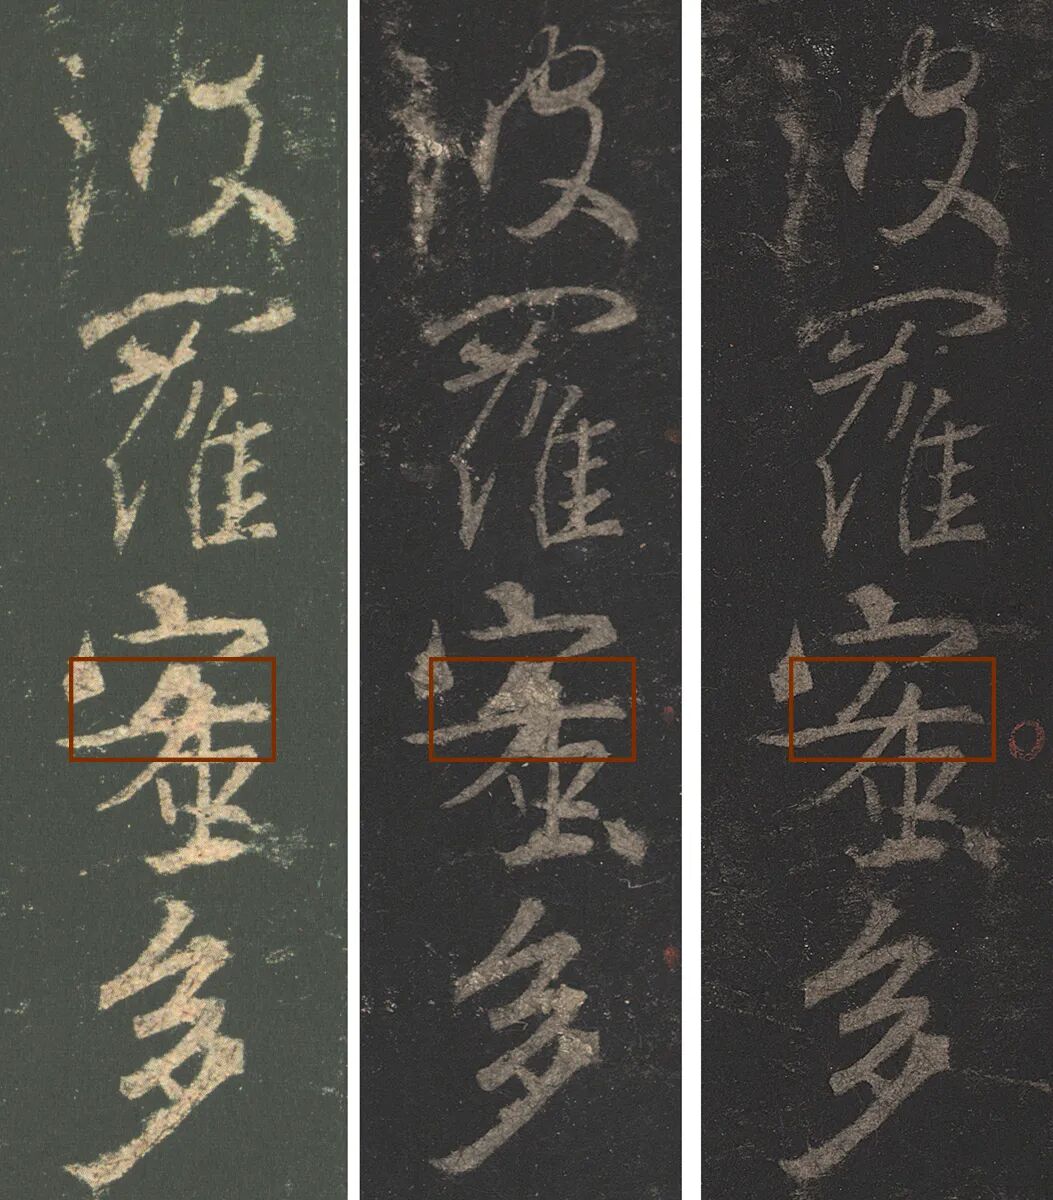 波羅蜜多
波羅蜜多
波羅蜜多